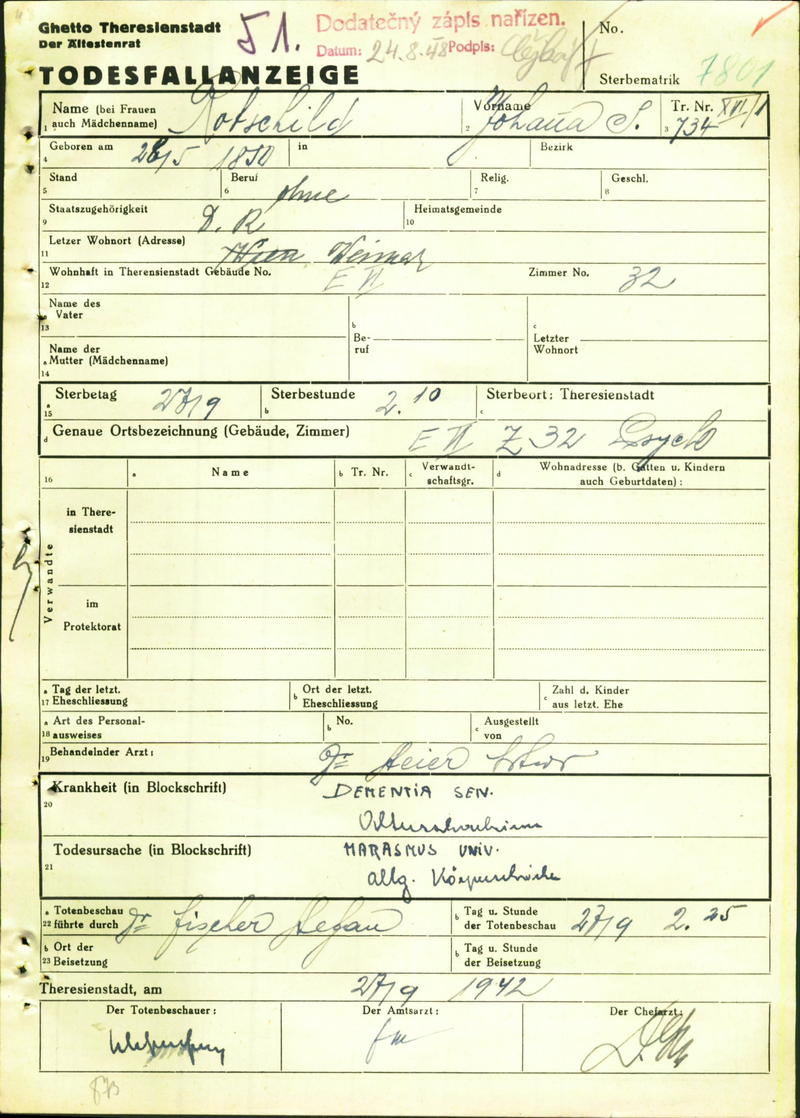 Ghetto Theresienstadt
Der Ältestenrat
51.
Dodatečný zápis nařízen.
Datum: 24.8.48 Podpis:
No.
TODESFALLANZEIGE
Sterbematrik 7801
Name (bei Frauen auch Mädchenname) Rotschild
Vorname Johana S.
Tr. Nr. XVI/1
1 2 3 734
Geboren am 26/5 1850 in Bezirk
4
Stand Beruf ohne Relig. Geschl.
5 6 7 8
Staatszugehörigkeit D. R Heimatsgemeinde
9 10
Letzer Wohnort (Adresse)
11 Wien Weimar
Wohnhaft in Theresienstadt Gebäude No. E VI Zimmer No. 32
12
Name des Vater
13
b Beruf
c Letzter Wohnort
Name der
a Mutter (Mädchenname)
14
a Sterbetag 27/9 Sterbestunde 2.10 Sterbeort: Theresienstadt
15 b c
d Genaue Ortsbezeichnung (Gebäude, Zimmer) E VI Z 32 Psych
16 a Name b Tr. Nr. c Verwandtschaftsgr. d Wohnadresse (b. Gatten u. Kindern auch Geburtdaten):
Verwandte
in Theresienstadt
im Protektorat
a Tag der letzt. b Ort der letzt. c Zahl d. Kinder
17 Eheschliessung Eheschliessung aus letzt. Ehe
a Art des Personal- b No. c Ausgestellt
18 ausweises von
Behandelnder Arzt: Dr
19
Krankheit (in Blockschrift) DEMENTIA SEN.
20
Todesursache (in Blockschrift) MARASMUS UNIV.
21 allg. Körperschwäche
a Totenbeschau b Tag u. Stunde
22 führte durch Dr Fischer der Totenbeschau 27/9 2.25
a Ort der b Tag u. Stunde
23 Beisetzung der Beisetzung
Theresienstadt, am 27/9 1942
Der Totenbeschauer: Der Amtsarzt: Der Chefarzt: